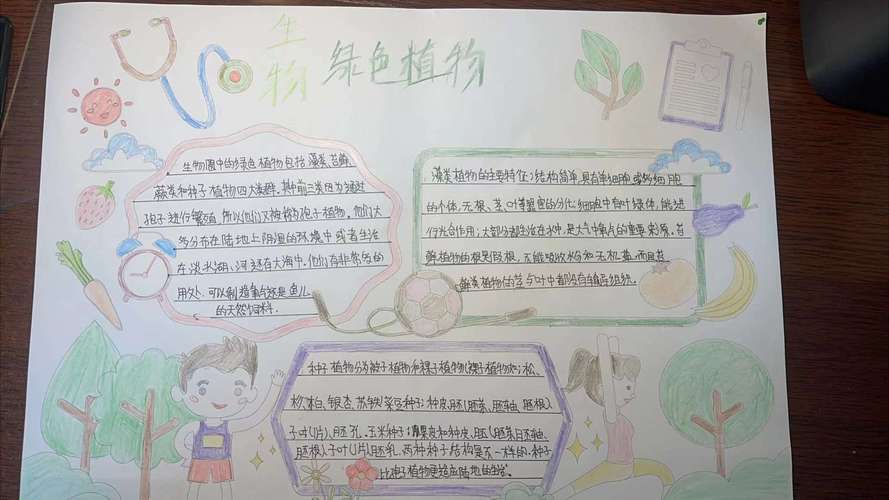 生物
绿色植物
生物圈中的绿色植物包括藻类、苔藓、
蕨类和种子植物四大类群。其中前三类因为通过
孢子进行繁殖,所以他们又被称为孢子植物,他们大
多分布在陆地上阴湿的环境中或者生活
在淡水湖、河还有大海中,他们有非常多的
用处,可以制造氧气还是鱼儿
的天然饲料.
藻类植物的主要特征:结构简单,具有单细胞或多细胞
的个体,无根、茎、叶等器官的分化;细胞中有叶绿体,能进
行光合作用;大部分都生活在水中,是大气中氧气的重要来源,苔
藓植物的根是假根,不能吸收水份和无机盐,而且苔
藓类植物的茎与叶中都没有输导组织.
种子植物分为被子植物和裸子植物(裸子植物如:松、
杉、柏、银杏、苏铁)菜豆种子:种皮、胚(胚芽、胚轴、胚根、
子叶(片)、胚孔.玉米种子:果皮和种皮、胚(胚芽、胚轴、
胚根、子叶(1片)、胚乳.两种种子结构是不一样的,种子
比孢子植物更适应陆地的生活.